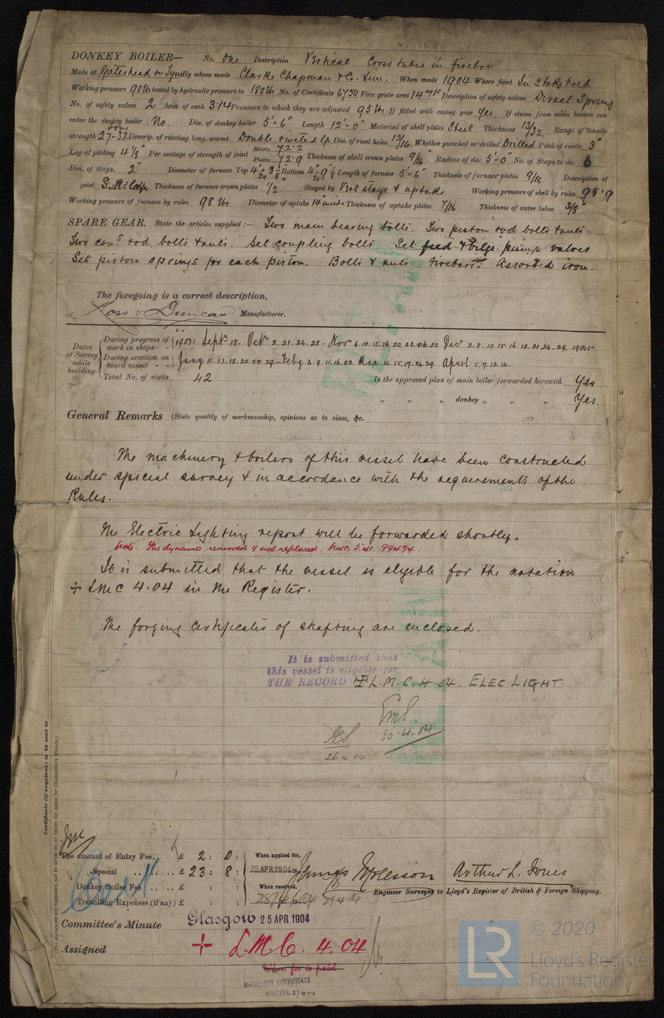 DONKEY BOILER— No. One Description Vertical Cross tubes in firebox
Made at Gateshead on Tyne By whom made Clarke Chapman & Co. Lim. When made 1904 Where fixed In Stokehold
Working pressure 90 lb tested by hydraulic pressure to 180 lb No. of Certificate 6734 Fire grate area Description of safety valves Direct Spring
No. of safety valves 2 Area of each 3.14 Pressure to which they are adjusted 95 lb If fitted with easing gear Yes If steam from main boilers can
enter the donkey boiler No. Dia. of donkey boiler 5'-6" Length 12'-0" Material of shell plates Steel Thickness 13/32 Range of tensile
strength 27-32 Tons Descrip. of riveting long. seams Double riveted lap Dia. of rivet holes 13/16 Whether punched or drilled Drilled Pitch of rivets 3"
Lap of plating 4 1/8" Per centage of strength of joint Rivets 72.2 Plates 72.9 Thickness of shell crown plates 9/16 Radius of do. 5'-0 No. of Stays to do. 6
Dia. of stays. 2" Diameter of furnace Top Bottom Length of furnace 5'-6" Thickness of furnace plates 9/16 Description of
joint S.R. Lap Thickness of furnace crown plates 1/2 Stayed by stays & uptake Working pressure of shell by rules 95.9
Working pressure of furnace by rules 98 lb Diameter of uptake 14 Thickness of uptake plates 7/16 Thickness of water tubes 3/8"
SPARE GEAR. State the articles supplied:— Two main bearing bolts. Two piston rod bolts & nuts.
Two con. rod. bolts & nuts. Set coupling bolts. Set feed & bilge pump valves
Set piston springs for each piston. Bolts & nuts Firebars. Assorted iron.
The foregoing is a correct description,
Ross & Duncan Manufacturer.
Dates of Survey while building
During progress of work in shops-- 1903: Sept 18. Oct 2. 21. 24. 28. Nov 6. 10. 15. 16. 20. Dec 2. 8. 10. 15. 16. 18. 21. 24. 29. 1904:
During erection on board vessel--- Jany 11. 12. 18. 20. 29. Feby 2. 9. 11. 16. 22. Mar 14. 15. 17. 24. 29. April 5. 7. 12. 14.
Total No. of visits 42
Is the approved plan of main boiler forwarded herewith Yes
" " " donkey " " " Yes
General Remarks (State quality of workmanship, opinions as to class, &c.
The machinery & boilers of this vessel have been constructed
under special survey & in accordance with the requirements of the
Rules.
The Electric Lighting report will be forwarded shortly.
Note. The dynamo removed & not replaced.
It is submitted that the vessel is eligible for the notation
+ LMC 4.04 in the Register.
The forging certificates of shafting are enclosed.
It is submitted that
this vessel is eligible for
THE RECORD + L.M.C. 4. 04. ELEC LIGHT.
26.4.04
26.4.04
Certificate (if required) to be sent to
The amount of Entry Fee.. £ 2 : 0 : When applied for,
Special .. £ 23 : 8 : 25 APR 1904
Donkey Boiler Fee .. £ : : When received,
Travelling Expenses (if any) £ : :
James Mollison Arthur L. Jones
Engineer Surveyor to Lloyd's Register of British & Foreign Shipping.
Committee's Minute Glasgow 25 APR 1904
Assigned + L.M.C. 4.04
When fee is paid
MACHINERY CERTIFICATE
WRITTEN. 27.4.04
© 2020
LR Lloyd's Register
Foundation